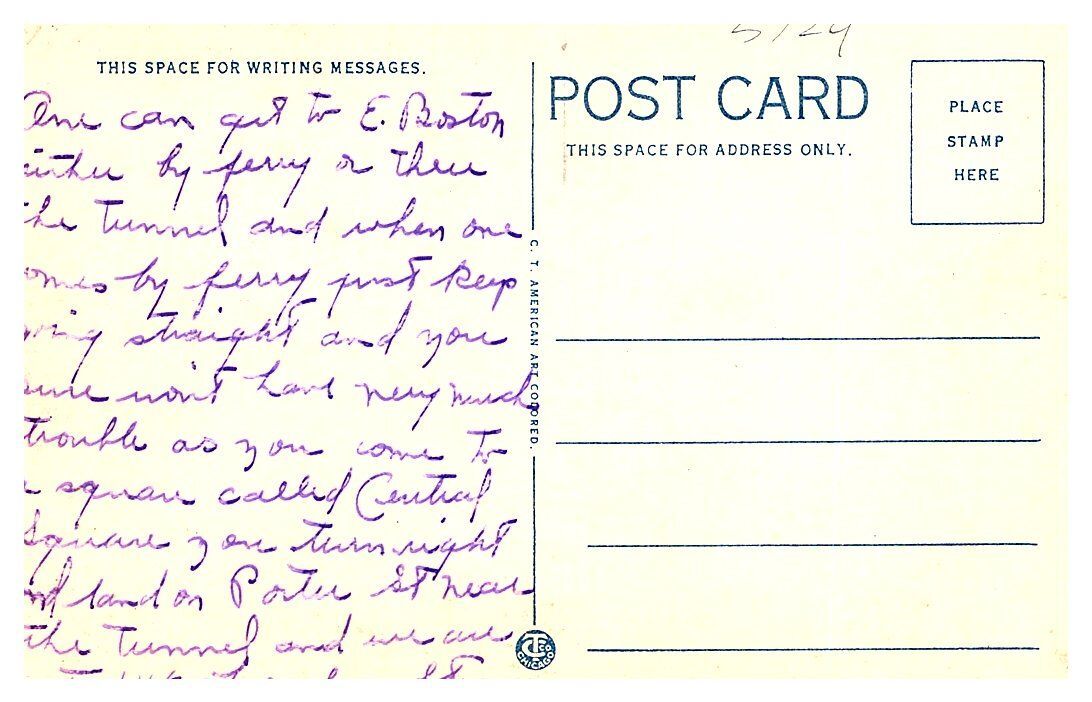 5124
THIS SPACE FOR WRITING MESSAGES.
POST CARD
THIS SPACE FOR ADDRESS ONLY.
PLACE
STAMP
HERE
One can get to E. Boston
either by ferry or thru
the tunnel and when one
comes by ferry just keep
going straight and you
won't have very much
trouble as you come to
a square called Central
Square you turn right
and land on Porter St near
the tunnel and we are
C. T. AMERICAN ART COLORED.
CT CO
CHICAGO